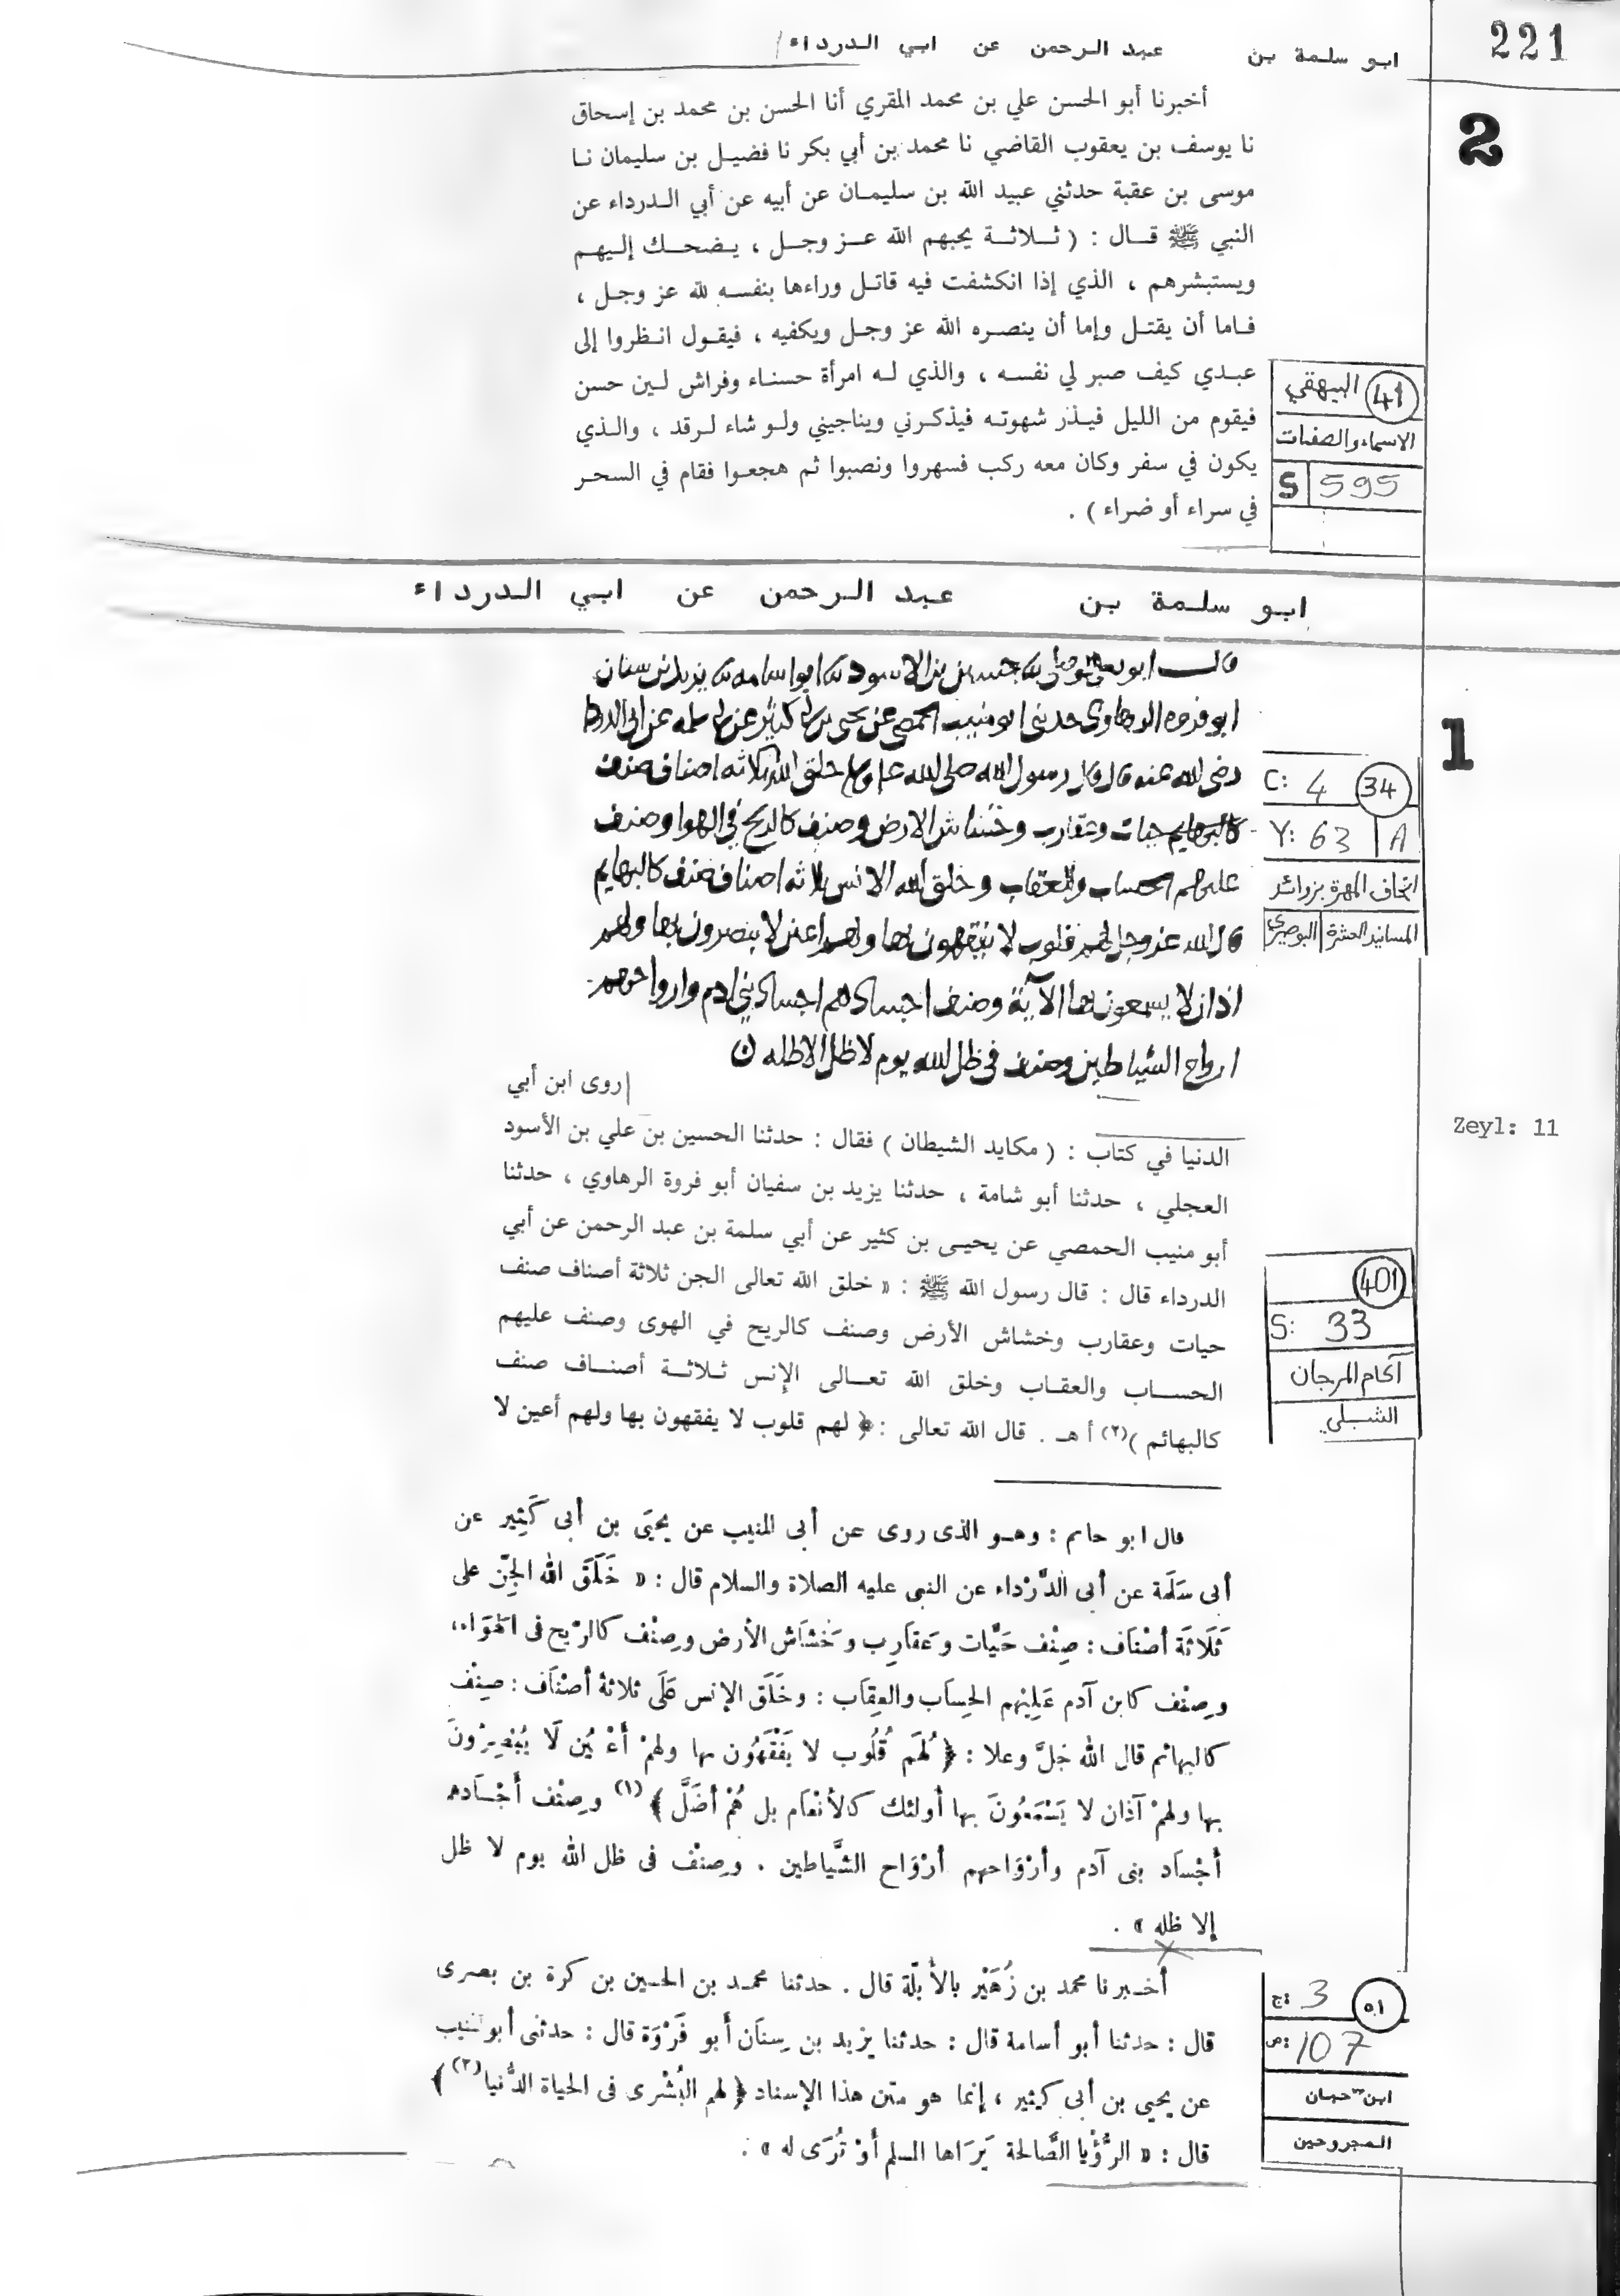 221
ابو سلمة بن عبد الرحمن عن ابي الدرداء
2
أخبرنا أبو الحسن علي بن محمد المقري أنا الحسن بن محمد بن إسحاق
نا يوسف بن يعقوب القاضي نا محمد بن أبي بكر نا فضيل بن سليمان نا
موسى بن عقبة حدثني عبيد الله بن سليمان عن أبيه عن أبي الدرداء عن
النبي ﷺ قال : ( ثلاثة يحبهم الله عز وجل ، يضحك إليهم
ويستبشرهم ، الذي إذا انكشفت فيه قاتل وراءها بنفسه لله عز وجل ،
فاما أن يقتل وإما أن ينصره الله عز وجل ويكفيه ، فيقول انظروا إلى
عبدي كيف صبر لي نفسه ، والذي له امرأة حسناء وفراش لين حسن
فيقوم من الليل فيذر شهوته فيذكرني ويناجيني ولو شاء لرقد ، والذي
يكون في سفر وكان معه ركب فسهروا ونصبوا ثم هجعوا فقام في السحر
في سراء أو ضراء ) .
41 البيهقي
الاسماء والصفات
S 595
ابو سلمة بن عبد الرحمن عن ابي الدرداء
1
ابو فروه الرهاوى حدثنى ابو منيب الحمصى عن يحيى بن ابى كثير عن ابى سلمه عن ابى الدردا
رضى الله عنه قال قال رسول الله صلى الله عليه وسلم خلق الله الجن ثلاثه اصناف صنف
حيات وعقارب وخشاش الارض وصنف كالريح فى الهوا وصنف
عليهم الحساب والعقاب وخلق الله الانس ثلاثه اصناف صنف كالبهايم
قال الله عز وجل لهم قلوب لا يفقهون بها ولهم اعين لا يبصرون بها ولهم
اذان لا يسمعون بها الآية وصنف اجسادهم اجساد بنى ادم وارواحهم
ارواح الشياطين وصنف فى ظل الله يوم لا ظل الا ظله
C: 4 34
Y: 63 A
اتحاف المهرة بزوائد
المسانيد العشرة البوصيري
روى ابن أبي
Zeyl: 11
الدنيا في كتاب : ( مكايد الشيطان ) فقال : حدثنا الحسين بن علي بن الأسود
العجلي ، حدثنا أبو شامة ، حدثنا يزيد بن سفيان أبو فروة الرهاوي ، حدثنا
أبو منيب الحمصي عن يحيى بن كثير عن أبي سلمة بن عبد الرحمن عن أبي
الدرداء قال : قال رسول الله ﷺ : « خلق الله تعالى الجن ثلاثة أصناف صنف
حيات وعقارب وخشاش الأرض وصنف كالريح في الهوى وصنف عليهم
الحساب والعقاب وخلق الله تعالى الإنس ثلاثة أصناف صنف
كالبهائم )(٢) أ هـ . قال الله تعالى : ﴿ لهم قلوب لا يفقهون بها ولهم أعين لا
401
S: 33
آكام المرجان
الشبلي
قال ابو حاتم : وهو الذى روى عن أبى المنيب عن يحيَى بن أبى كَثِير عن
أبى سَلَمَة عن أبى الدَّرْداء عن النبى عليه الصلاة والسلام قال : « خَلَقَ الله الجِنّ على
ثَلَاثَة أصْنَاف : صِنْف حَيَّات وعَقارِب وخَشَاش الأرض وصِنْف كالرّيح فى الهَوَاء ،
وصِنْف كابن آدم عَلَيْهم الحِسَاب والعِقاب : وخَلَق الإنس عَلَى ثلاثة أصْنَاف : صِنْف
كالبهائم قال الله جَلَّ وعلا : ﴿ لهَم قُلُوب لا يَفْقَهُون بها ولهمْ أَعْيُن لَا يُبْصِرُونَ
بها ولهمْ آذَان لا يَسْمَعُونَ بها أولئك كالأنْعَام بل هُمْ أضَلّ ﴾ (١) وصِنْف أَجْسَاده
أَجْسَاد بنى آدم وأرْوَاحهم أرْوَاح الشَّياطين . وصِنْف فى ظل الله يوم لا ظل
إلا ظله » .
أخبرنا محمد بن زُهَيْر بالأُبلّة قال . حدثنا محمد بن الحسين بن كرة بن بصرى
قال : حدثنا أبو أسامة قال : حدثنا يزيد بن سِنَان أبو فَرْوَة قال : حدثنى أبو المنيب
عن يحيى بن أبى كثير ، إنما هو متن هذا الإسناد ﴿ لهم البُشْرى فى الحياة الدُّنيا (٢) ﴾
قال : « الرُّؤْيا الصَّالحة يَرَاها المسلم أوْ تُرَى له » .
ج: 3 ١٥١
ص: 107
ابن حبان
المجروحين